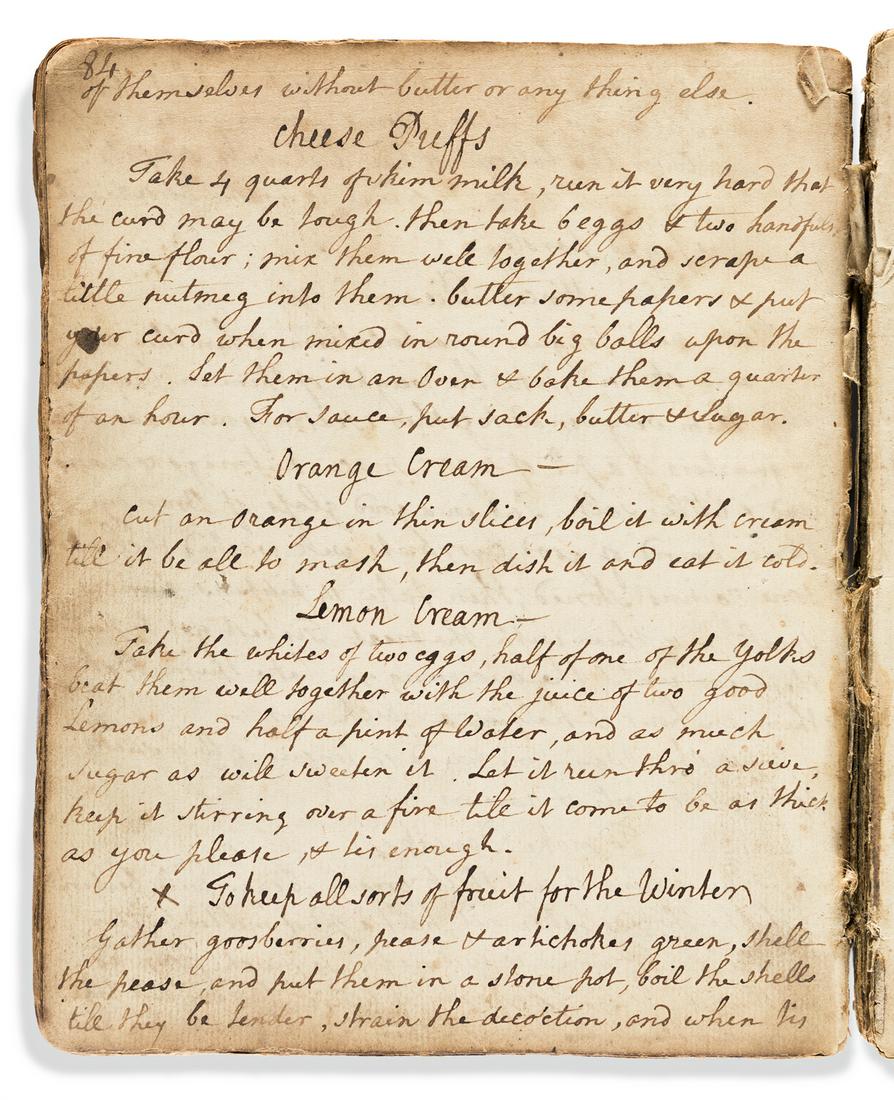 84
of themselves without butter or any thing else.
Cheese Puffs
Take 4 quarts of skim milk, run it very hard that
the curd may be tough. then take 6 eggs & two handfuls
of fine flour; mix them well together, and scrape a
little nutmeg into them. butter some papers & put
your curd when mixed in round big balls upon the
papers. Set them in an Oven & bake them a quarter
of an hour. For sauce, put sack, butter & sugar.
Orange Cream —
Cut an Orange in thin slices, boil it with cream
till it be all to mash, then dish it and eat it cold.
Lemon Cream —
Take the whites of two eggs, half of one of the Yolks
beat them well together with the juice of two good
Lemons and half a pint of Water, and as much
sugar as will sweeten it. Let it run thro' a sieve,
keep it stirring over a fire till it come to be as thick
as you please, & tis enough.
x To keep all sorts of fruit for the Winter
Gather goosberries, pease & artichokes green, shell
the pease, and put them in a stone pot, boil the shells
till they be tender, strain the decoction, and when tis